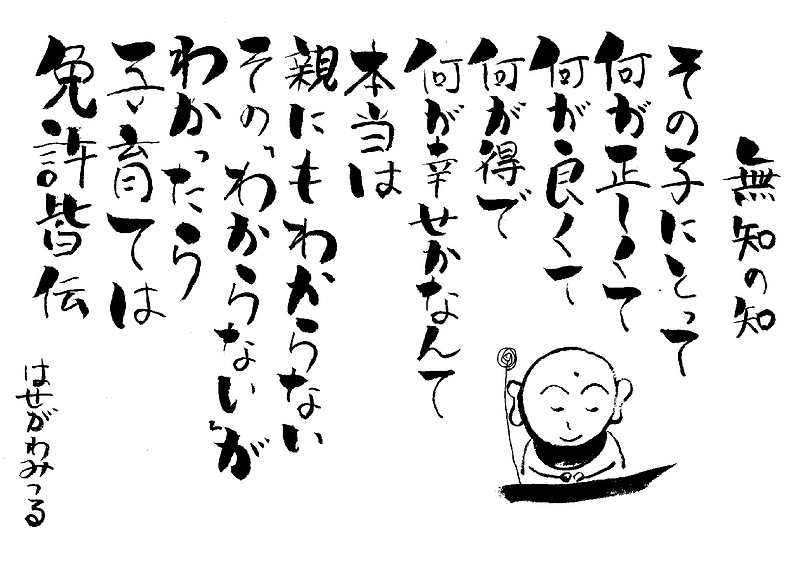 無知の知
その子にとって
何が正しくて
何が良くて
何が得で
何が幸せかなんて
本当は
親にもわからない
その「わからない」が
わかったら
子育ては
免許皆伝
はせがわみつる